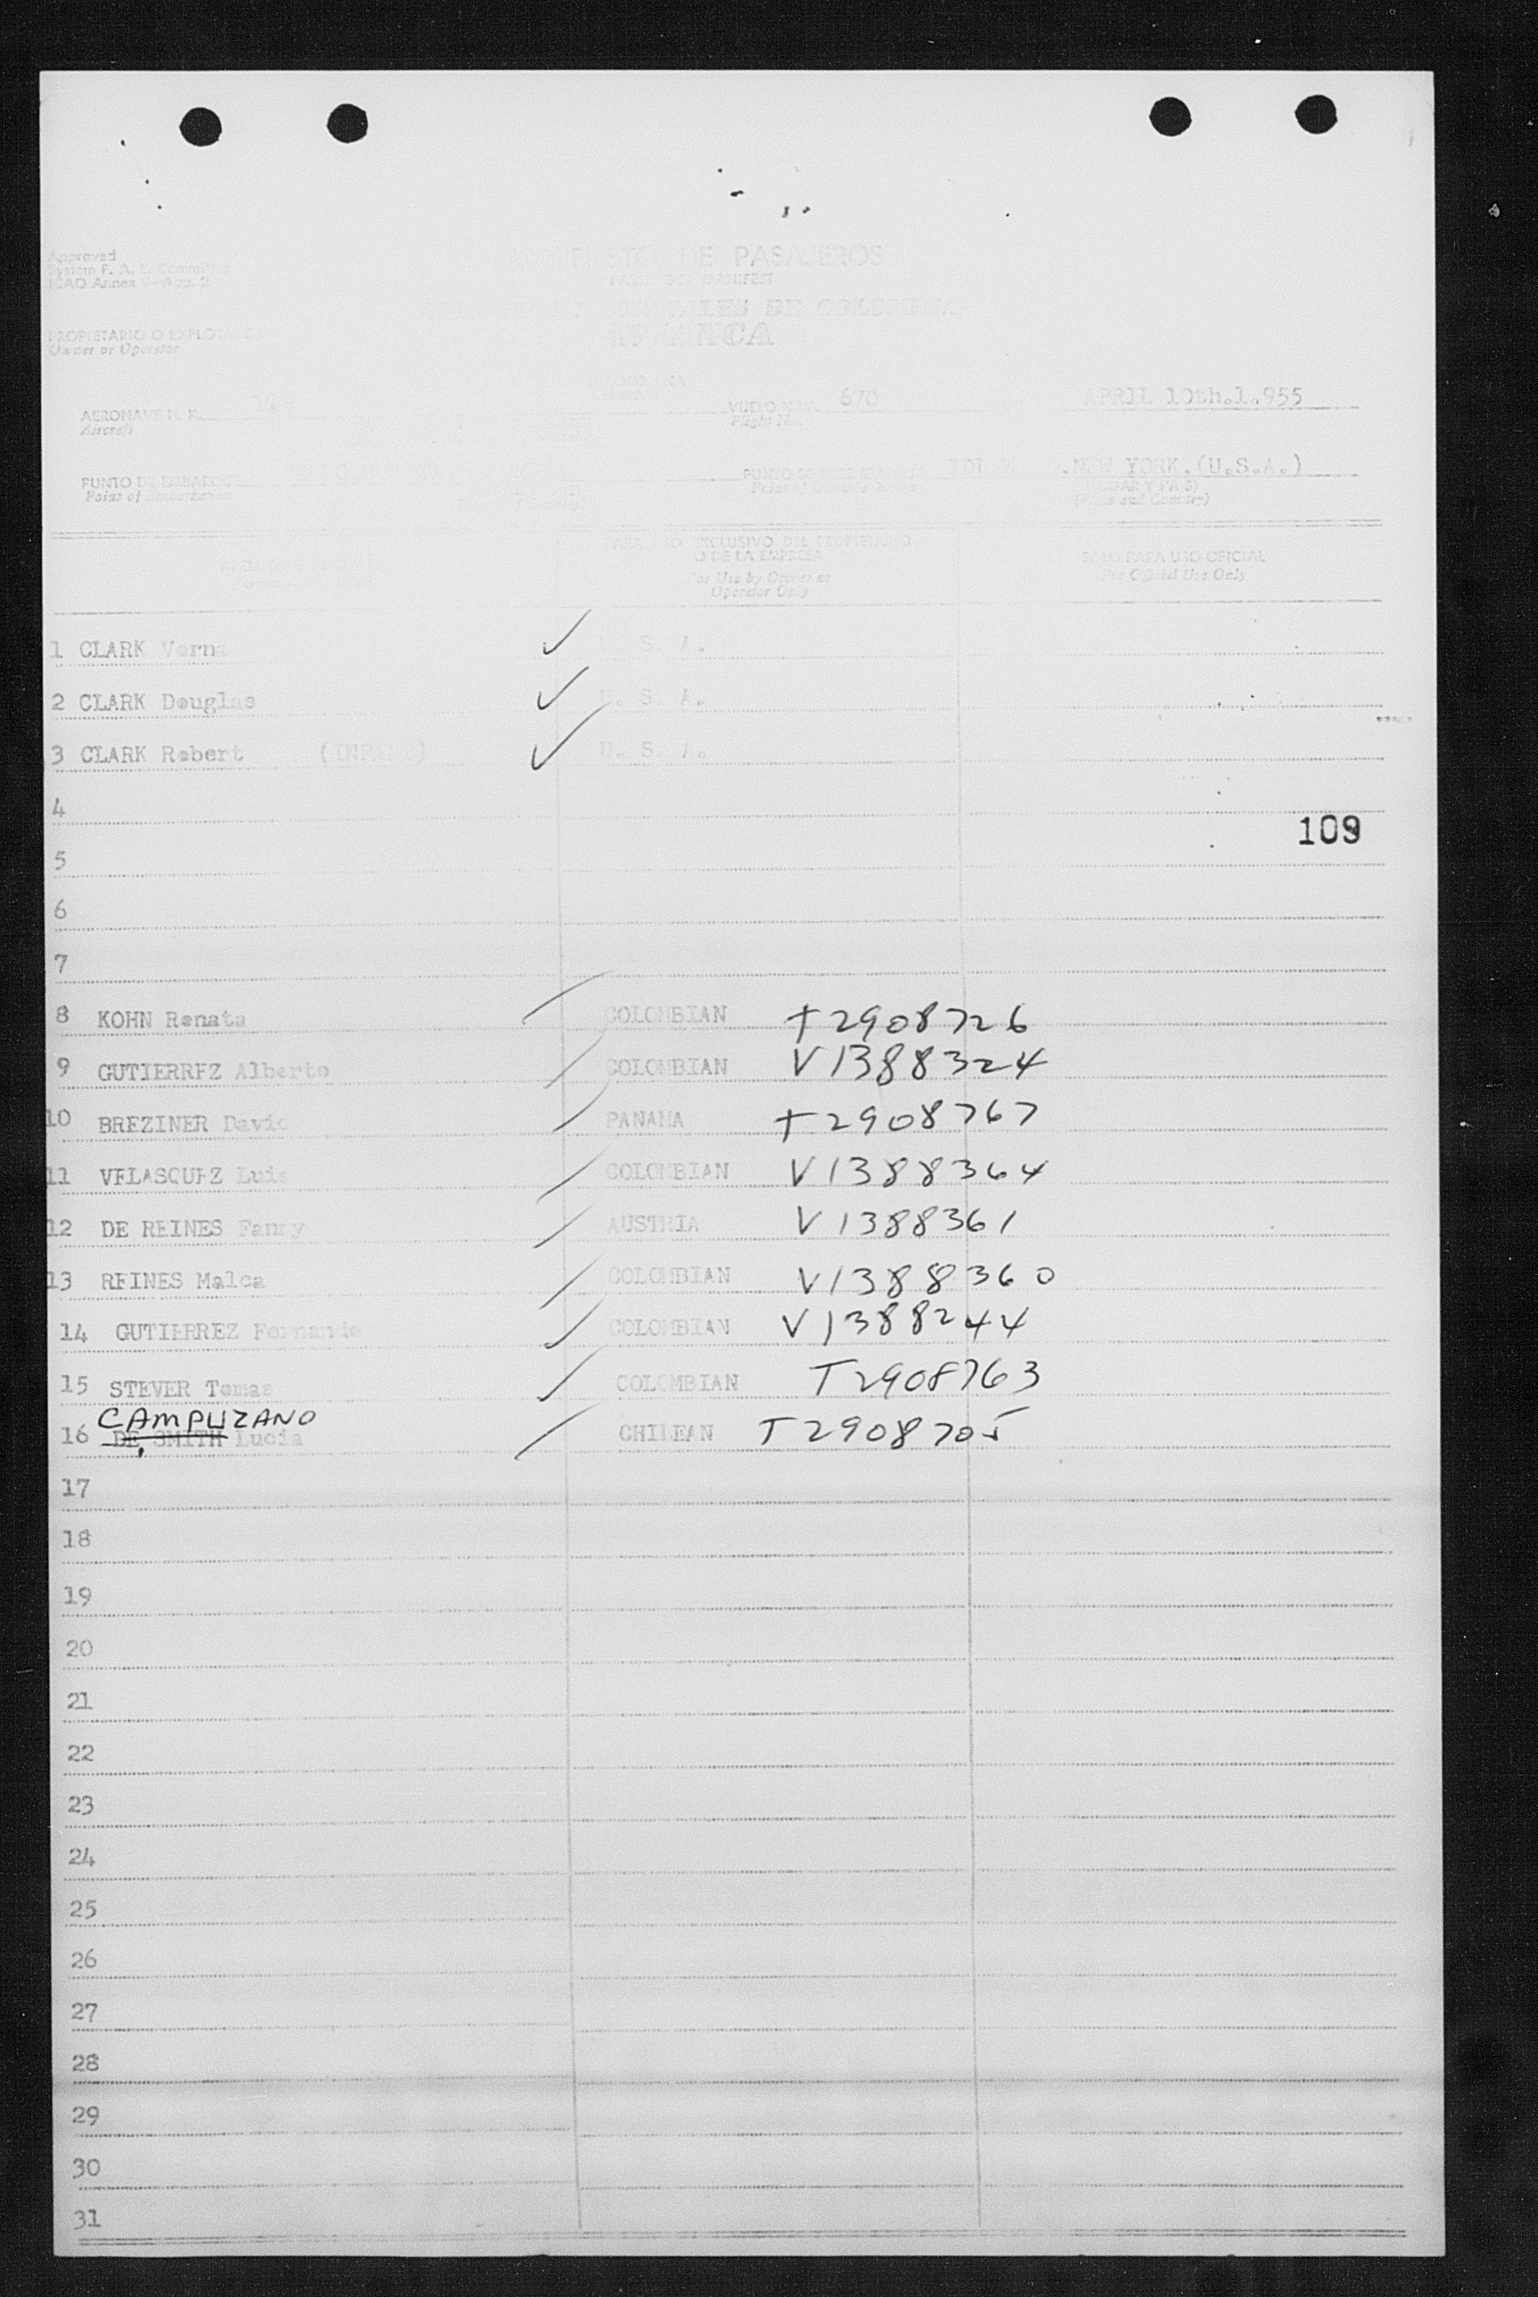 Approved
System F. A. L.
ICAO Annex
DE PASAJEROS
MANIFEST
DE COLOMBIA
PROPIETARIO O
Owner or Operator
AERONAVE
Aircraft
VUELO
Flight No.
670
APRIL 10th.1.955
PUNTO DE
Point of
PUNTO
NEW YORK.(U.S.A.)
(Place and Country)
EXCLUSIVO DEL PROPIETARIO
O DE LA EMPRESA
For Use by Owner or
Operator Only
SOLO PARA USO OFICIAL
For Official Use Only
1 CLARK Verna ✓ U. S. A.
2 CLARK Douglas ✓ U. S. A.
3 CLARK Robert (INFANT) ✓ U. S. A.
4
109
5
6
7
8 KOHN Renata / COLOMBIAN T2908726
9 GUTIERREZ Alberto / COLOMBIAN V1388324
10 BREZINER David / PANAMA T2908767
11 VELASQUEZ Luis / COLOMBIAN V1388364
12 DE REINES Fanny / AUSTRIA V1388361
13 REINES Malca / COLOMBIAN V1388360
14 GUTIERREZ Fernando ✓ COLOMBIAN V1388244
15 STEVER Tomas ✓ COLOMBIAN T2908763
CAMPUZANO
16 DE SMITH Lucia / CHILEAN T2908705
17
18
19
20
21
22
23
24
25
26
27
28
29
30
31